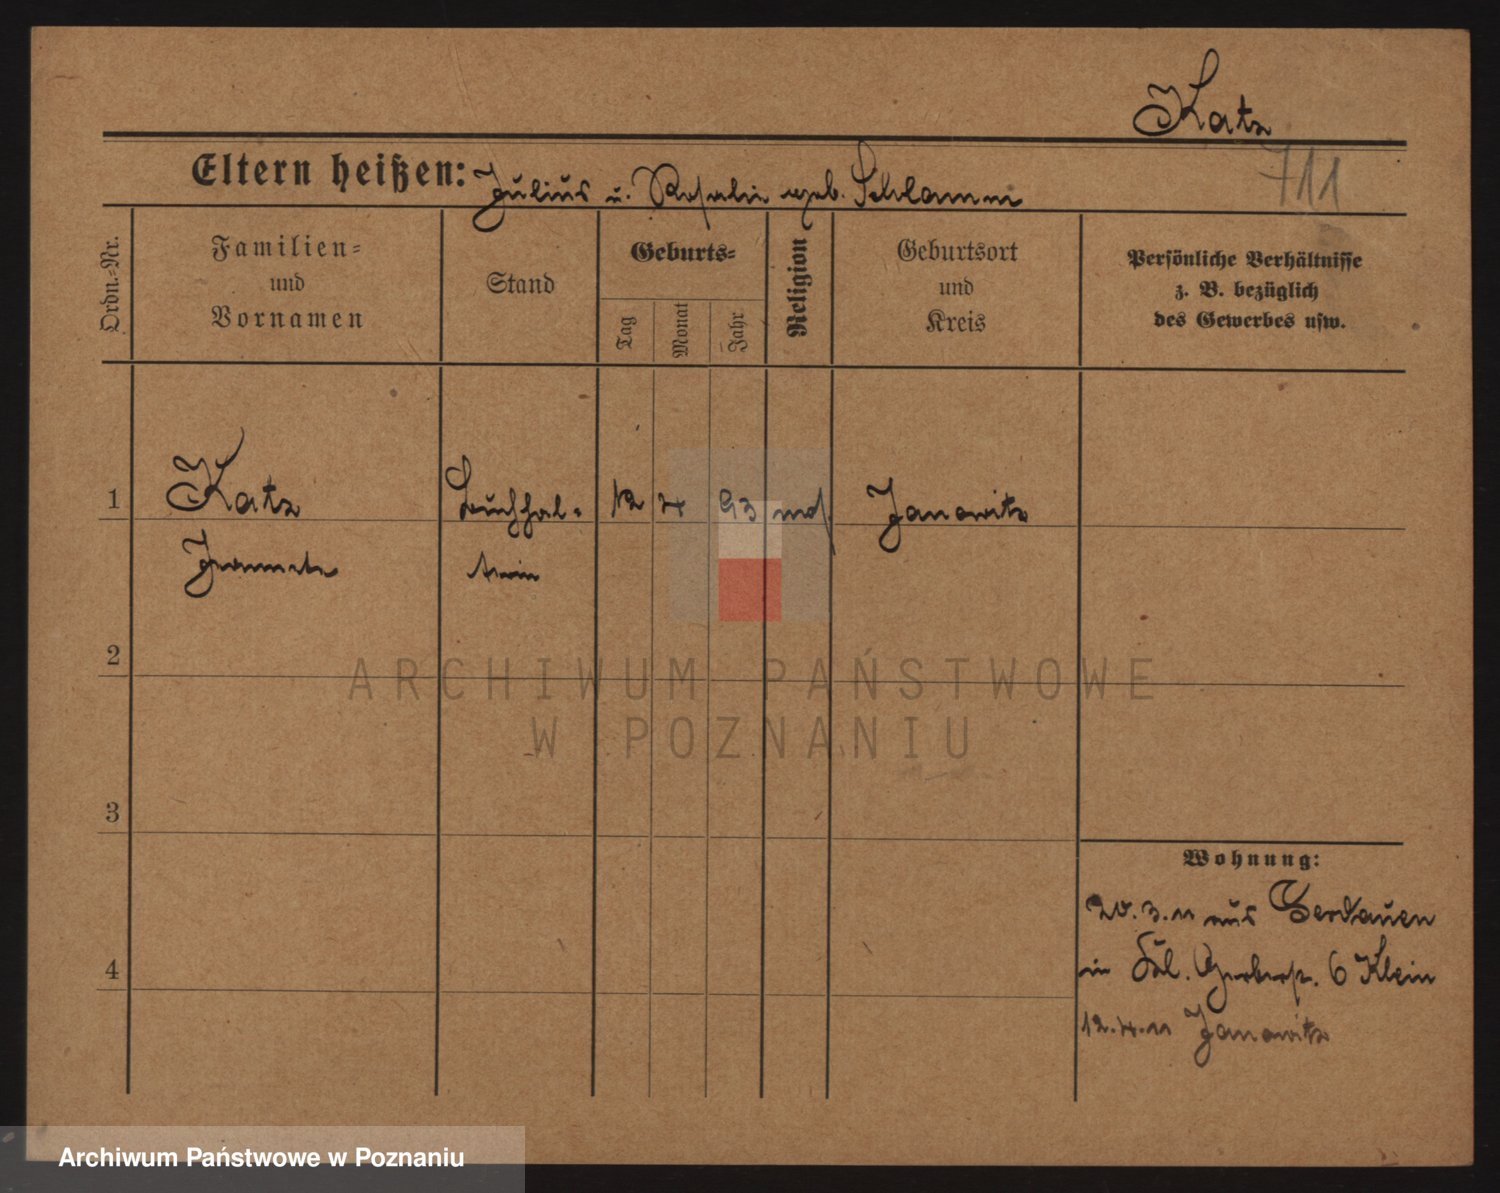 Katz
711
Eltern heißen: Julius u. Rosalie geb. Schlamm
Ordn.-Nr.
Familien-
und
Vornamen
Stand
Geburts-
Tag
Monat
Jahr
Religion
Geburtsort
und
Kreis
Persönliche Verhältnisse
z. B. bezüglich
des Gewerbes usw.
1
Katz
Buchhal-
12 4 93 mos.
Janowitz
Jeannette
terin
2
3
4
Wohnung:
20.3.11 aus Gerdauen
in Gerberst. 6 Klein
12.4.11 Janowitz
ARCHIWUM PAŃSTWOWE
W POZNANIU
Archiwum Państwowe w Poznaniu